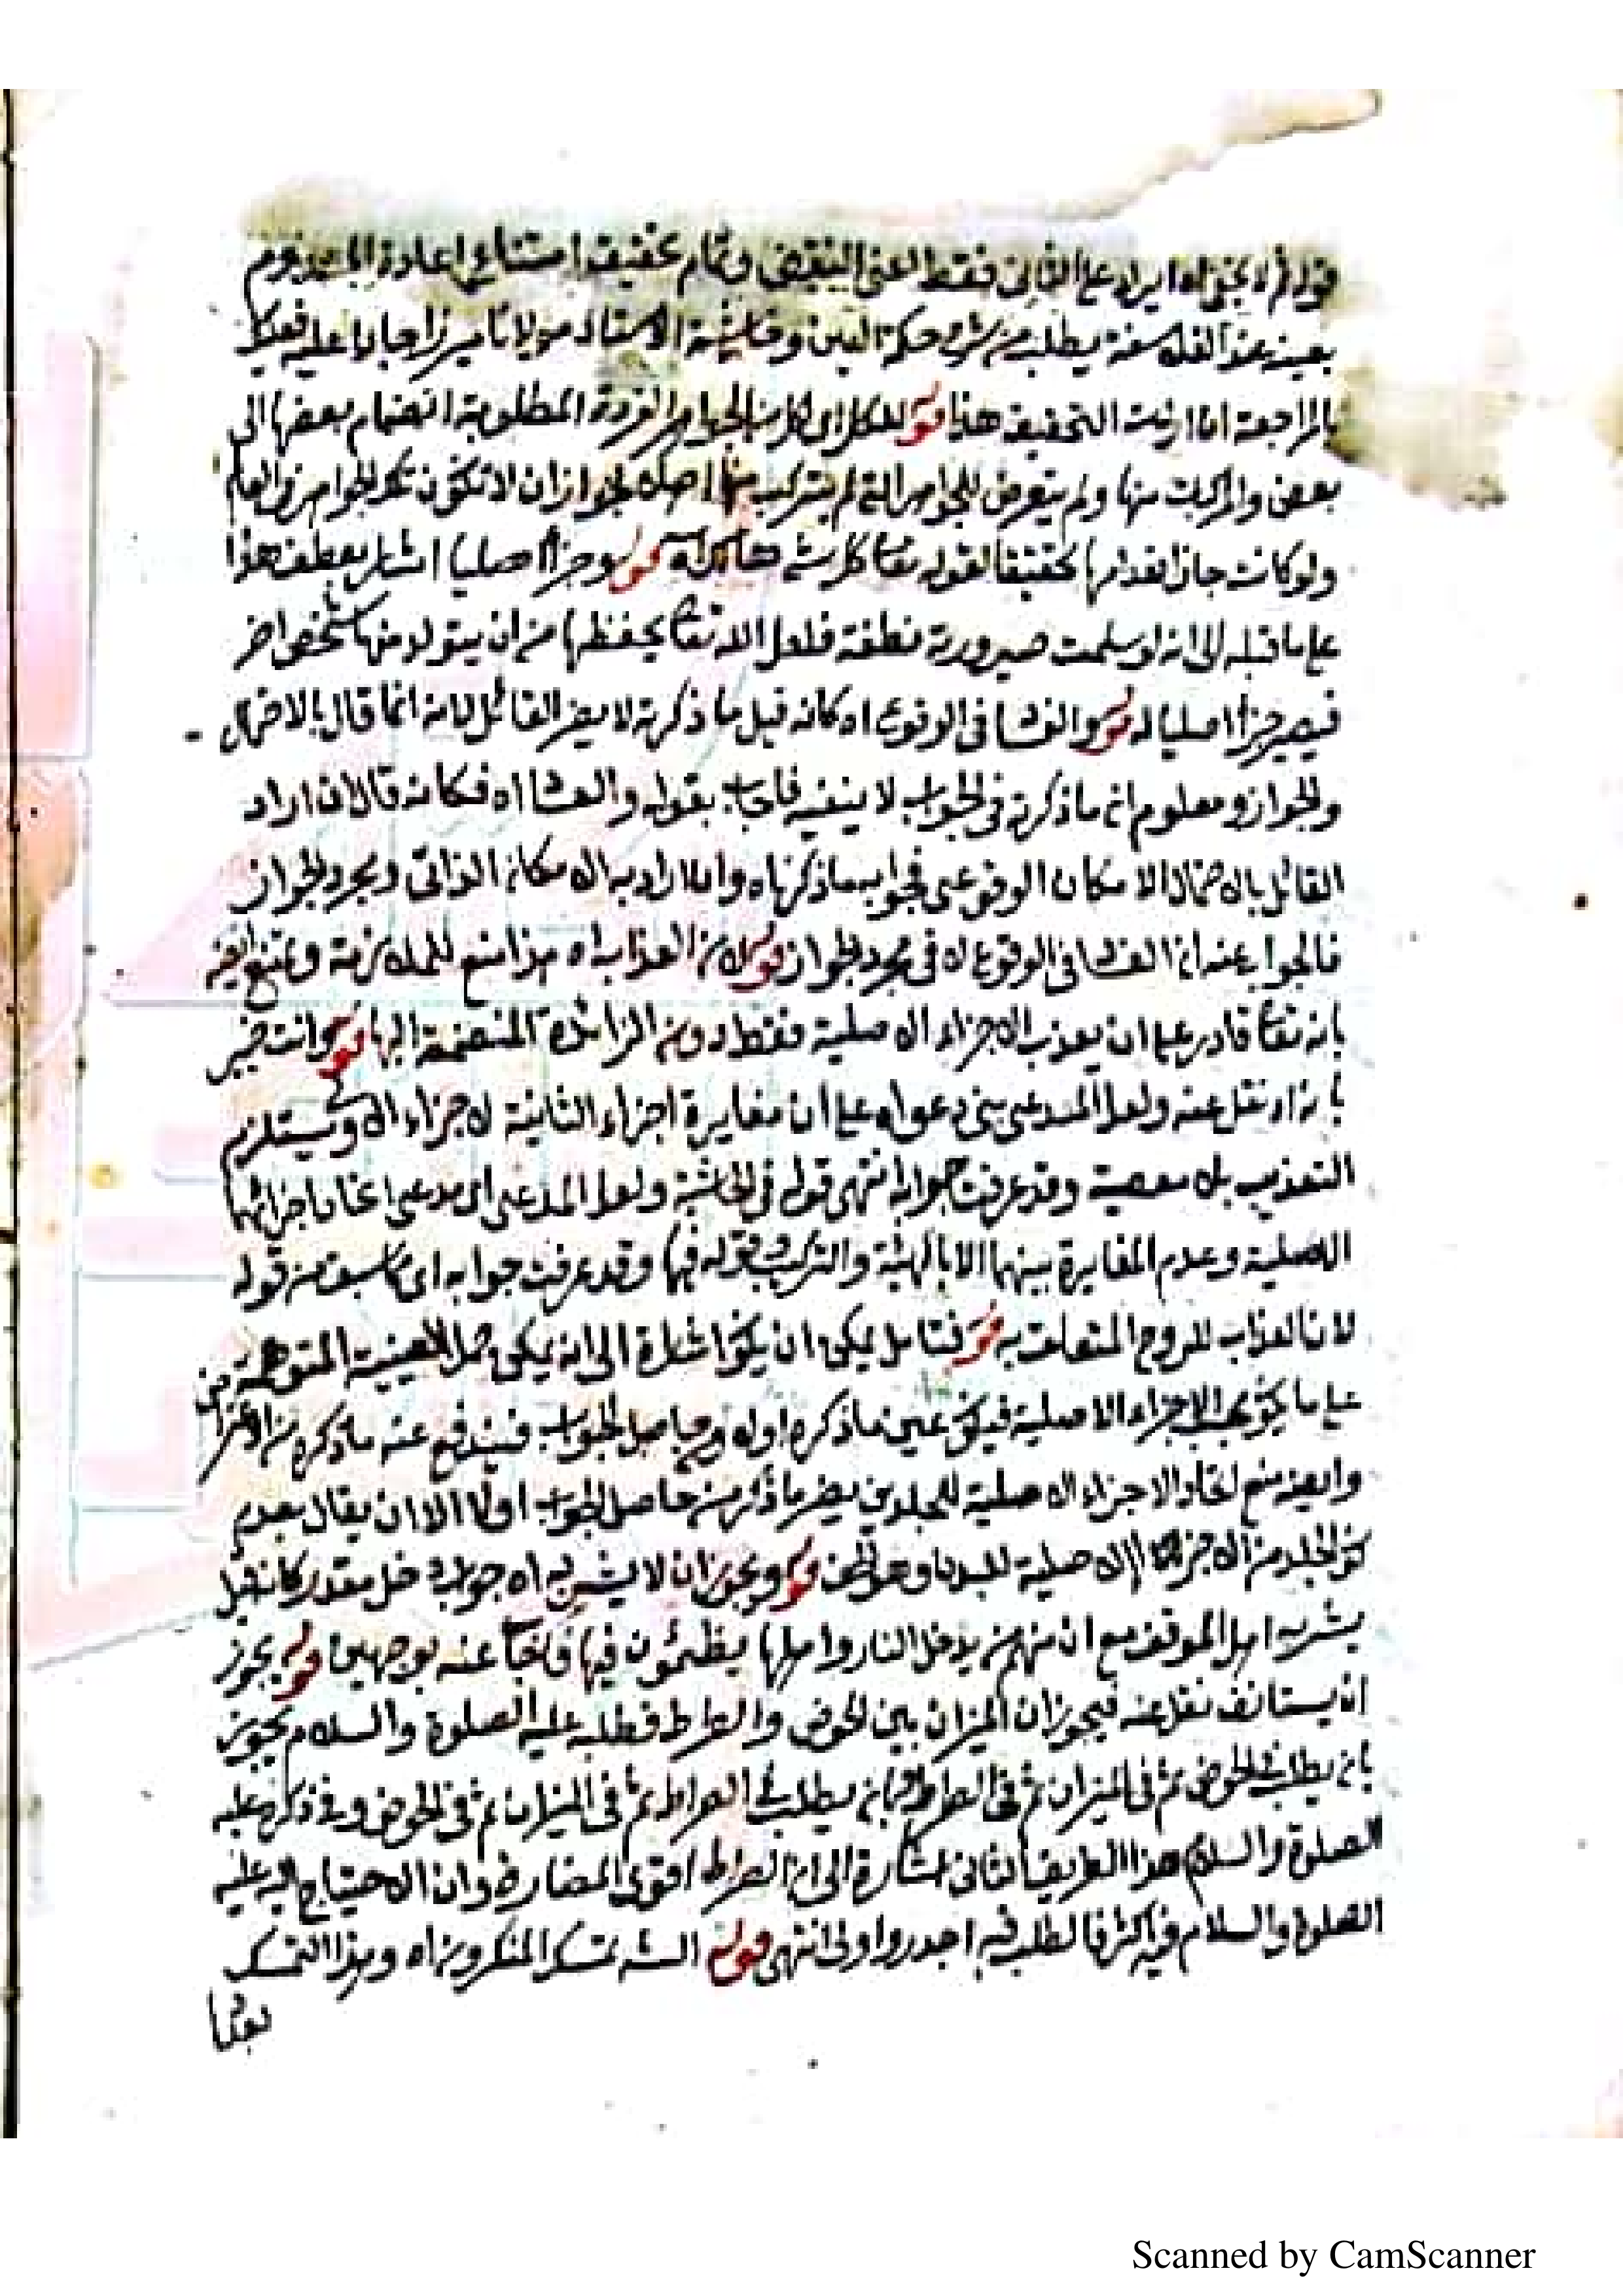 فقط اعنى النقض وتمام تحقيق امتناع اعادة المعدوم
بعينه عند الفلاسفة يطلب من شرح حكمة العين وحاشية الاستاد مولانا ميرزاجان عليه فعليك
بالمراجعة ان اردت التحقيق هذا قوله للكل اى كل من الجواهر الفردة المطلوبة انضمام بعضها الى
بعض والمركبت منها ولم يتعرض للجواهر التى لم يتركب منها اصلا لجواز ان لا تكون تلك الجواهر فى العالم
ولو كانت جاز انعدامها تحقيقا لقوله تعا كل شئ هالك قوله وجزأ اصليا اشار بعطف هذا
على ما قبله الى انه لو سلمت صيرورته نطفة فلعل الله تعا يحفظها من ان يتولد منها شخص اخر
فيصير جزأ اصليا له قوله والفسا فى الوقوع اه كانه قيل ما ذكرته لا يضر القائل لانه انما قال بالاحتمال
والجواز ومعلوم ان ما ذكرته فى الجواب لا ينفيه فاجاب بقوله والفسا اه فكانه قال ان اراد
القائل بالاحتمال الامكان الوقوعى فجوابه ما ذكرناه وان اراد به الامكان الذاتى ومجرد الجواز
فالجواب عنه ان الفسا فى الوقوع لا فى مجرد الجواز قوله من العذاب اه هذا منع للملازمة ويمنع ايضا
بانه تعا قادر على ان يعذب الاجزاء الاصلية فقط دون الزائدة المنضمة اليها قوله وانت خبير
بانه اه نقل عنه ولعل المدعى بنى دعواه على ان مغايرة اجزاء الثانية لاجزاء الاولى يستلزم
التعذيب بلا معصية وقد عرفت جوابه انتهى قوله فى الحاشية ولعل المدعى اى مدعى اتحاد اجزائهما
الاصلية وعدم المغايرة بينهما الا بالهيئة والتركيب قوله فيها وقد عرفت جوابه اى ما سبق من قوله
لان العذاب للروح المتعلق به قوله فتأمل يمكن ان يكون اشارة الى انه يمكن حمل العينية المتوهمة من
على ما يكون بحسب الاجزاء الاصلية فيكون عين ما ذكره اولا وحاصل الجواب فيندفع عنه ما ذكره من الاعتراض
وايضا منع اتحاد الاجزاء الاصلية للجلدين يضر ما ذكر من حاصل الجواب اولا الا ان يقال بعدم
كون الجلد من الاجزاء الاصلية للبدن وهو الحق قوله ويجوز ان لا يشرب اه جواب دخل مقدر كانه قيل
يشربه اهل الموقف مع ان منهم من يدخل النار واهلها يظمئون فيها فاجاب عنه بوجهين قوله يجوز
ان يستانف نقل عنه فيجوز ان الميزان بين الحوض والصراط فطلبه عليه الصلوة والسلام يجوز
بان يطلب فى الحوض ثم فى الميزان ثم فى الصراط وبان يطلب فى الصراط ثم فى الميزان ثم فى الحوض وفى ذكره عليه
الصلوة والسلام هذا الطريق الثانى اشارة الى ان الصراط اقوى المضار وان الاحتياج اليه عليه
الصلوة والسلام فيه اكثر فالطلب فيه اجدر واولى انتهى قوله الشه تمسك المنكرون اه وهذا التمسك
Scanned by CamScanner